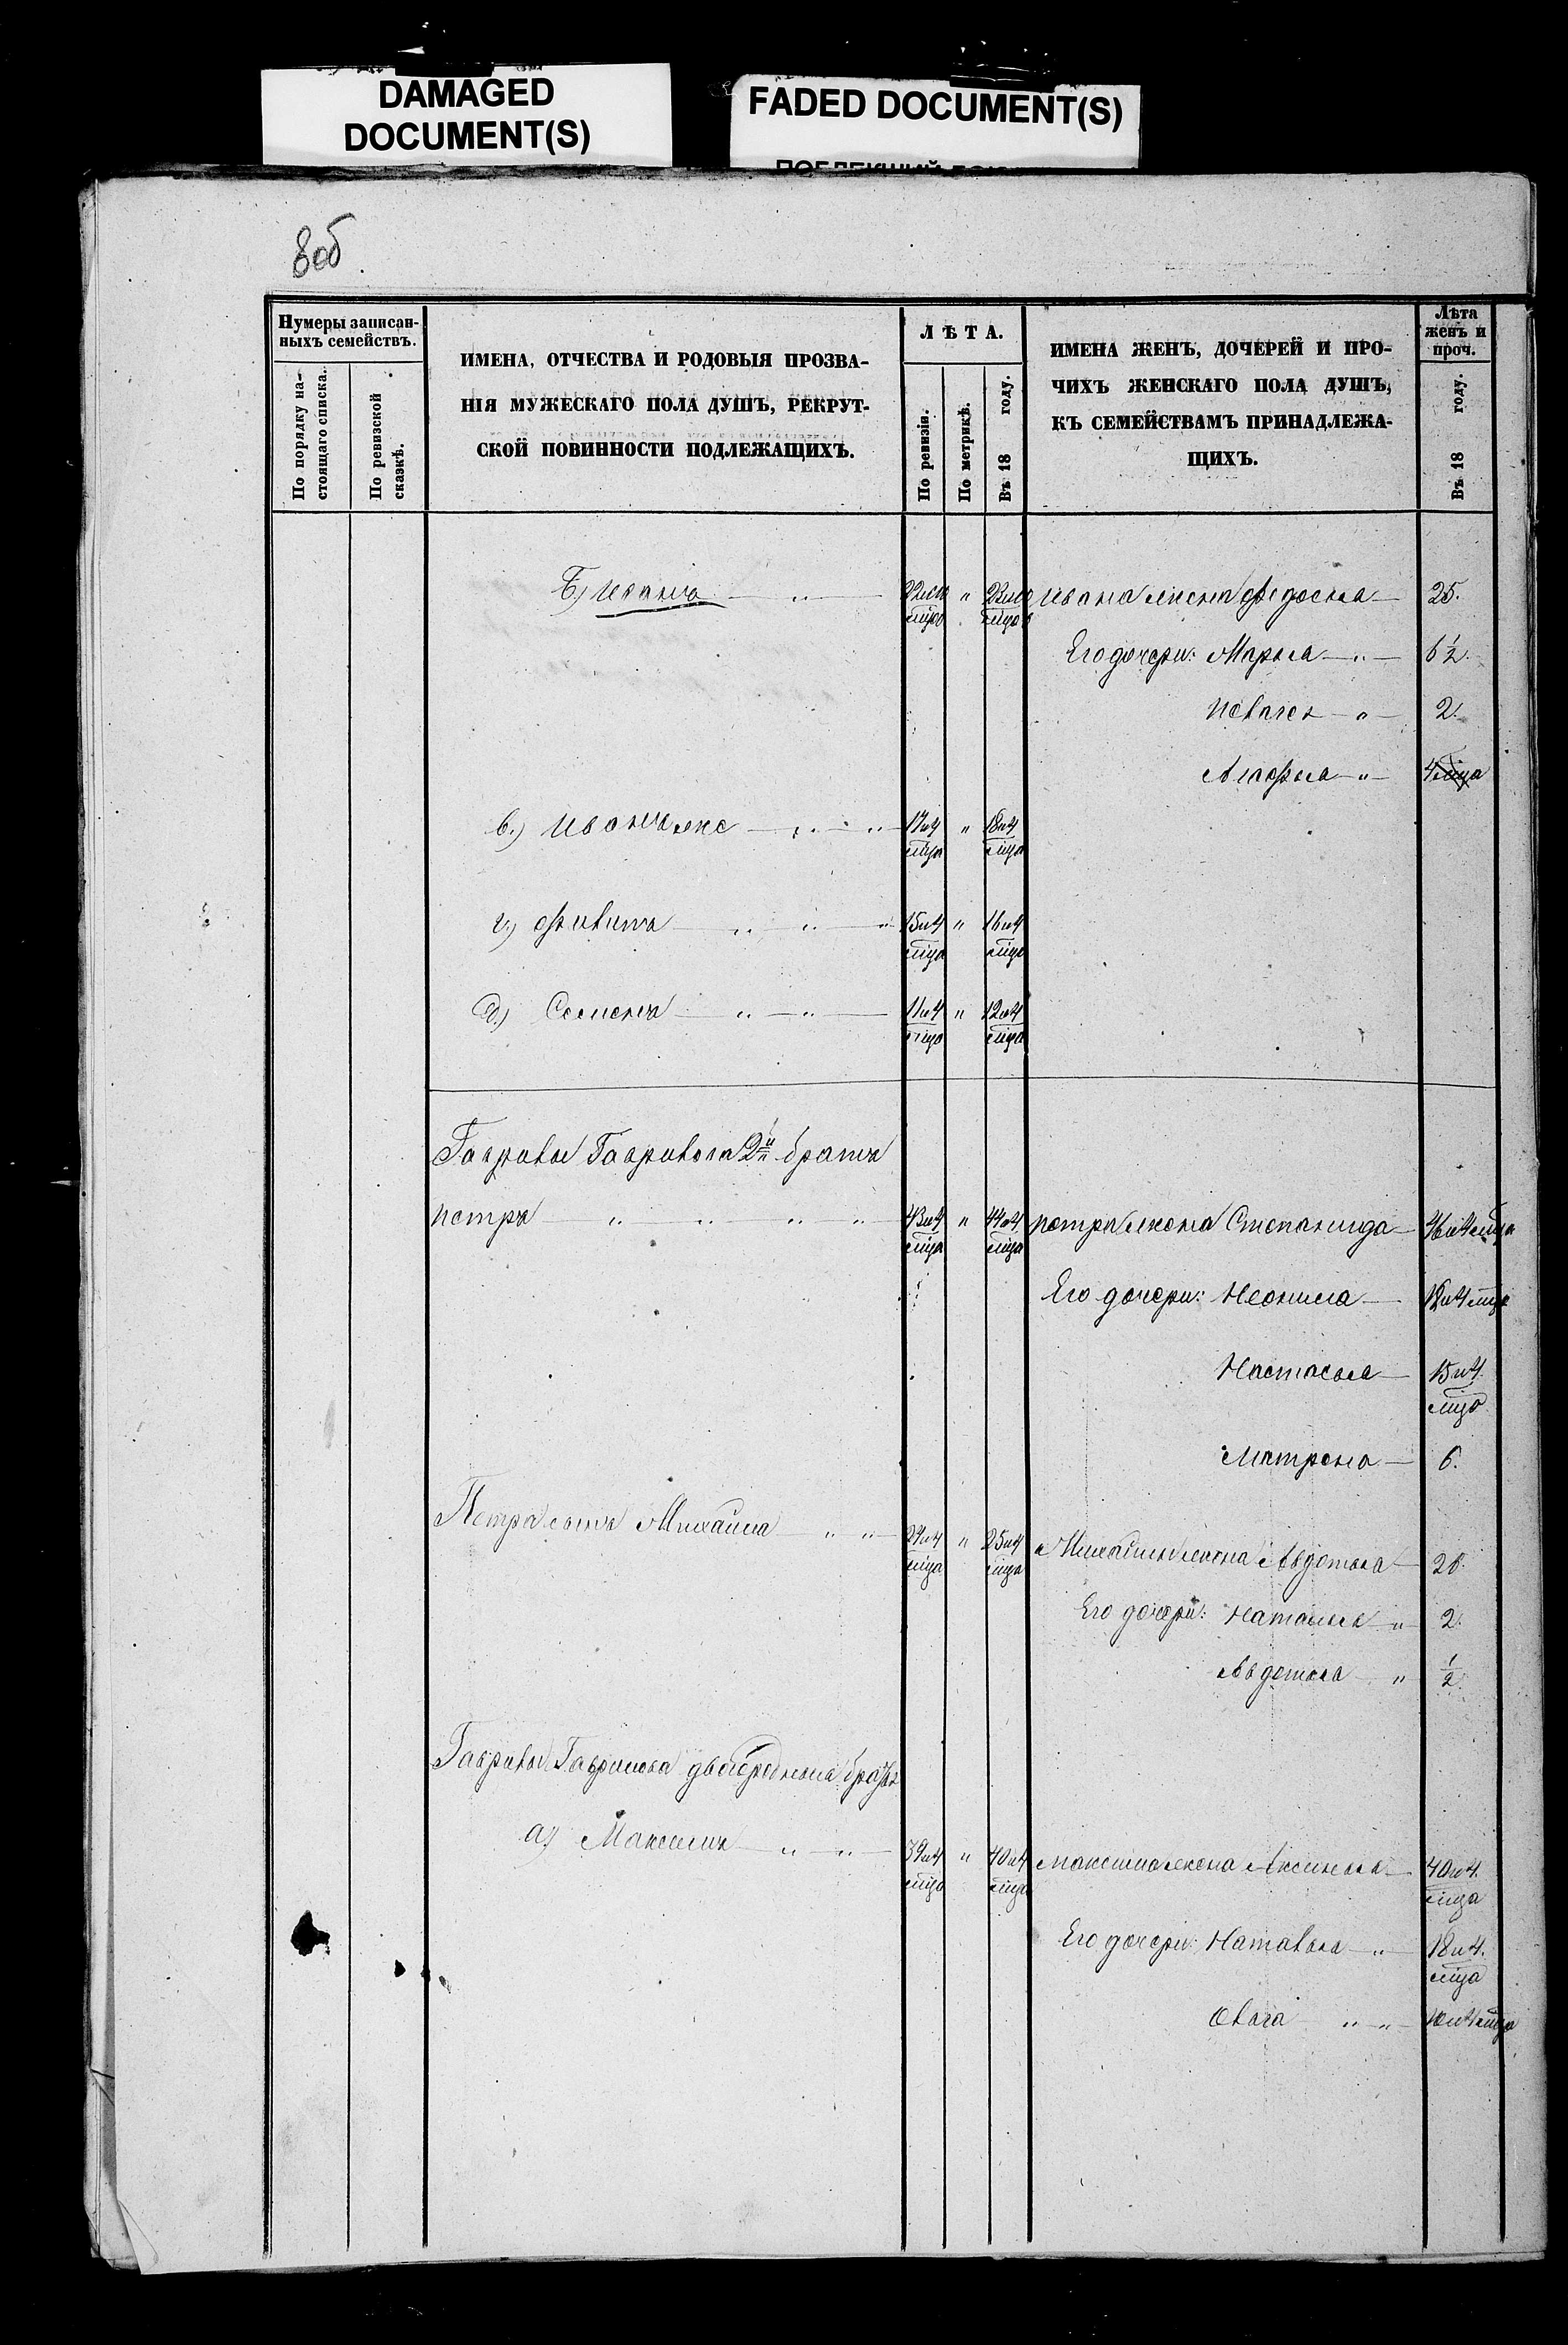 DAMAGED
DOCUMENT(S)
FADED DOCUMENT(S)
8об
Нумеры записан-
ныхъ семействъ.
По порядку на-
стоящаго списка.
По ревизской
сказкѣ.
ИМЕНА, ОТЧЕСТВА И РОДОВЫЯ ПРОЗВА-
НІЯ МУЖЕСКАГО ПОЛА ДУШЪ, РЕКРУТ-
СКОЙ ПОВИННОСТИ ПОДЛЕЖАЩИХЪ.
ЛѢТА.
По ревизіи.
По метрикѣ.
Въ 18 году.
ИМЕНА ЖЕНЪ, ДОЧЕРЕЙ И ПРО-
ЧИХЪ ЖЕНСКАГО ПОЛА ДУШЪ,
КЪ СЕМЕЙСТВАМЪ ПРИНАДЛЕЖА-
ЩИХЪ.
Лѣта
женъ и
проч.
Въ 18 году.
Б) Иванъ — " — " Ивана жена Федосья — 25.
Его дочери: Марья — " — 6 1/2.
Пелагея — " — 2.
Агафья — " — 4 мца
в.) Иванъ же — " — " — 17 и 4 мца " 18 и 4 мца
г.) Филипъ — " — " — " 15 и 4 мца " 16 и 4 мца
д.) Семенъ — " — " — 11 и 4 мца " 12 и 4 мца
Гаврилы Гаврилова 2й братъ
Петръ — " — " — " — " — 43 и 4 мца " 44 и 4 мца Петра жена Степанида — 46 и 4 мца
Его дочери: Неонила — и 4 мца
Настасья — 15 и 4 мца
Матрена — 6.
Петра сынъ Михаила — " — " — 24 и 4 мца " 25 и 4 мца Михаилы жена Авдотья —
Его дочери: Наталья " 2.
Авдотья — " 1/2.
Гаврилы Гаврилова двоюродные братья
а) Максимъ — " — " — 39 и 4 мца " 40 и 4 мца Максима жена Аксинья — 40 и 4 мца
Его дочери: Наталья — " — 18 и 4 мца
Ольга " — " — 10 и 4 мца